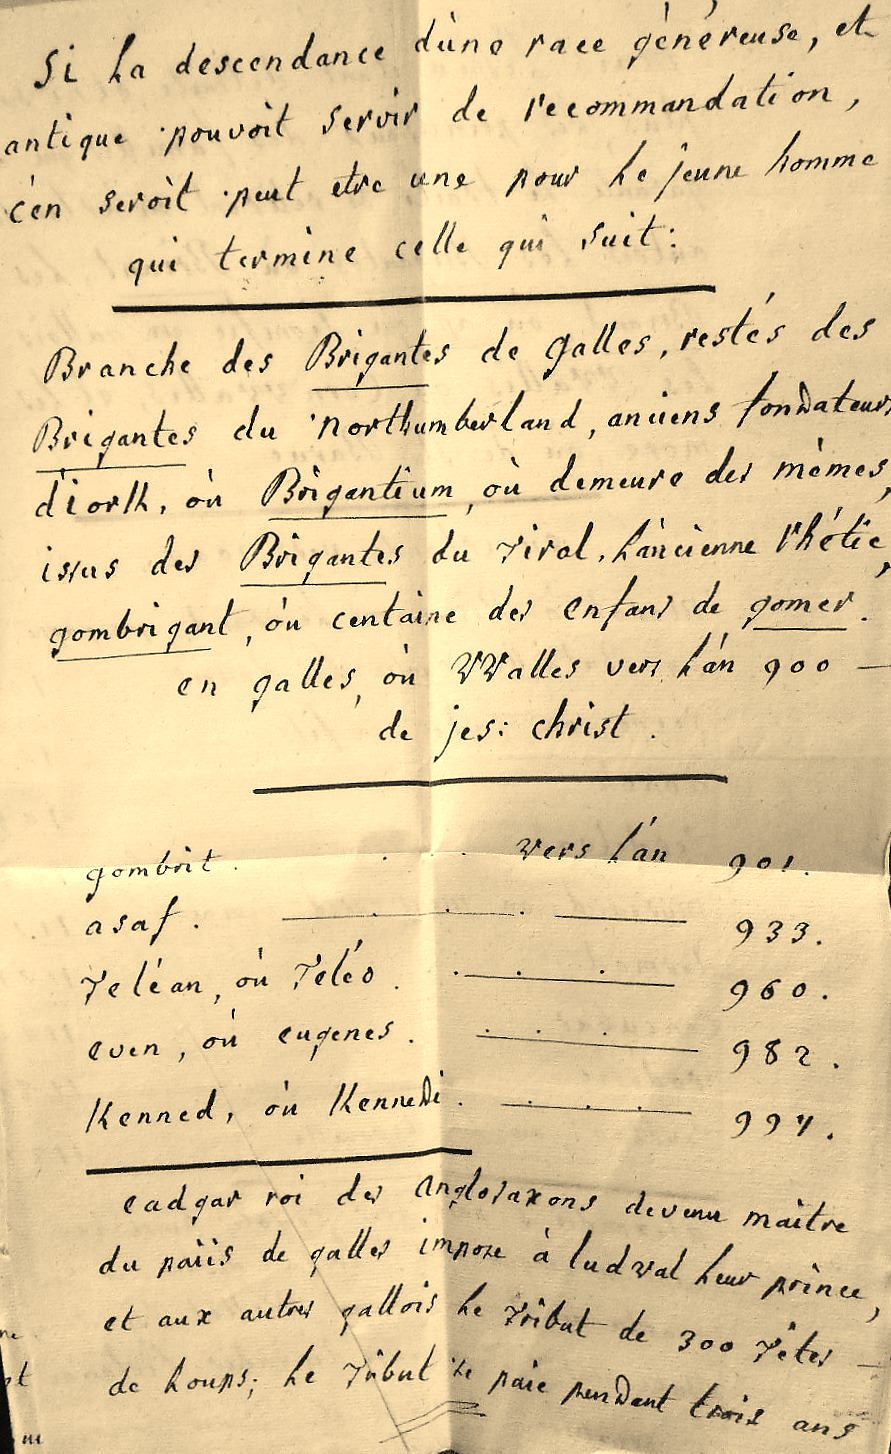 Si la descendance d'une race généreuse, et
antique pouvoit servir de recommandation,
c'en seroit peut etre une pour le jeune homme
qui termine celle qui suit:
Branche des Brigantes de galles, restés des
Brigantes du northumberland, anciens fondateurs
d'iork, où Brigantium, où demeure des mêmes,
issus des Brigantes du Tirol, l'ancienne rhétie,
gombrigant, où centaine des enfans de gomer.
en galles, où VValles vers l'an 900 —
de jes: christ.
gombrit. . . . vers l'an 901.
asaf. 933.
Teléan, où Téléo. 960.
even, où eugenes. 982.
Kenned, où Kennedi. 997.
eadgar roi des anglosaxons devenu maitre
du païis de galles impose à ludval leur prince,
et aux autres gallois le tribut de 300 têtes —
de loups; le tribut se paie pendant trois ans